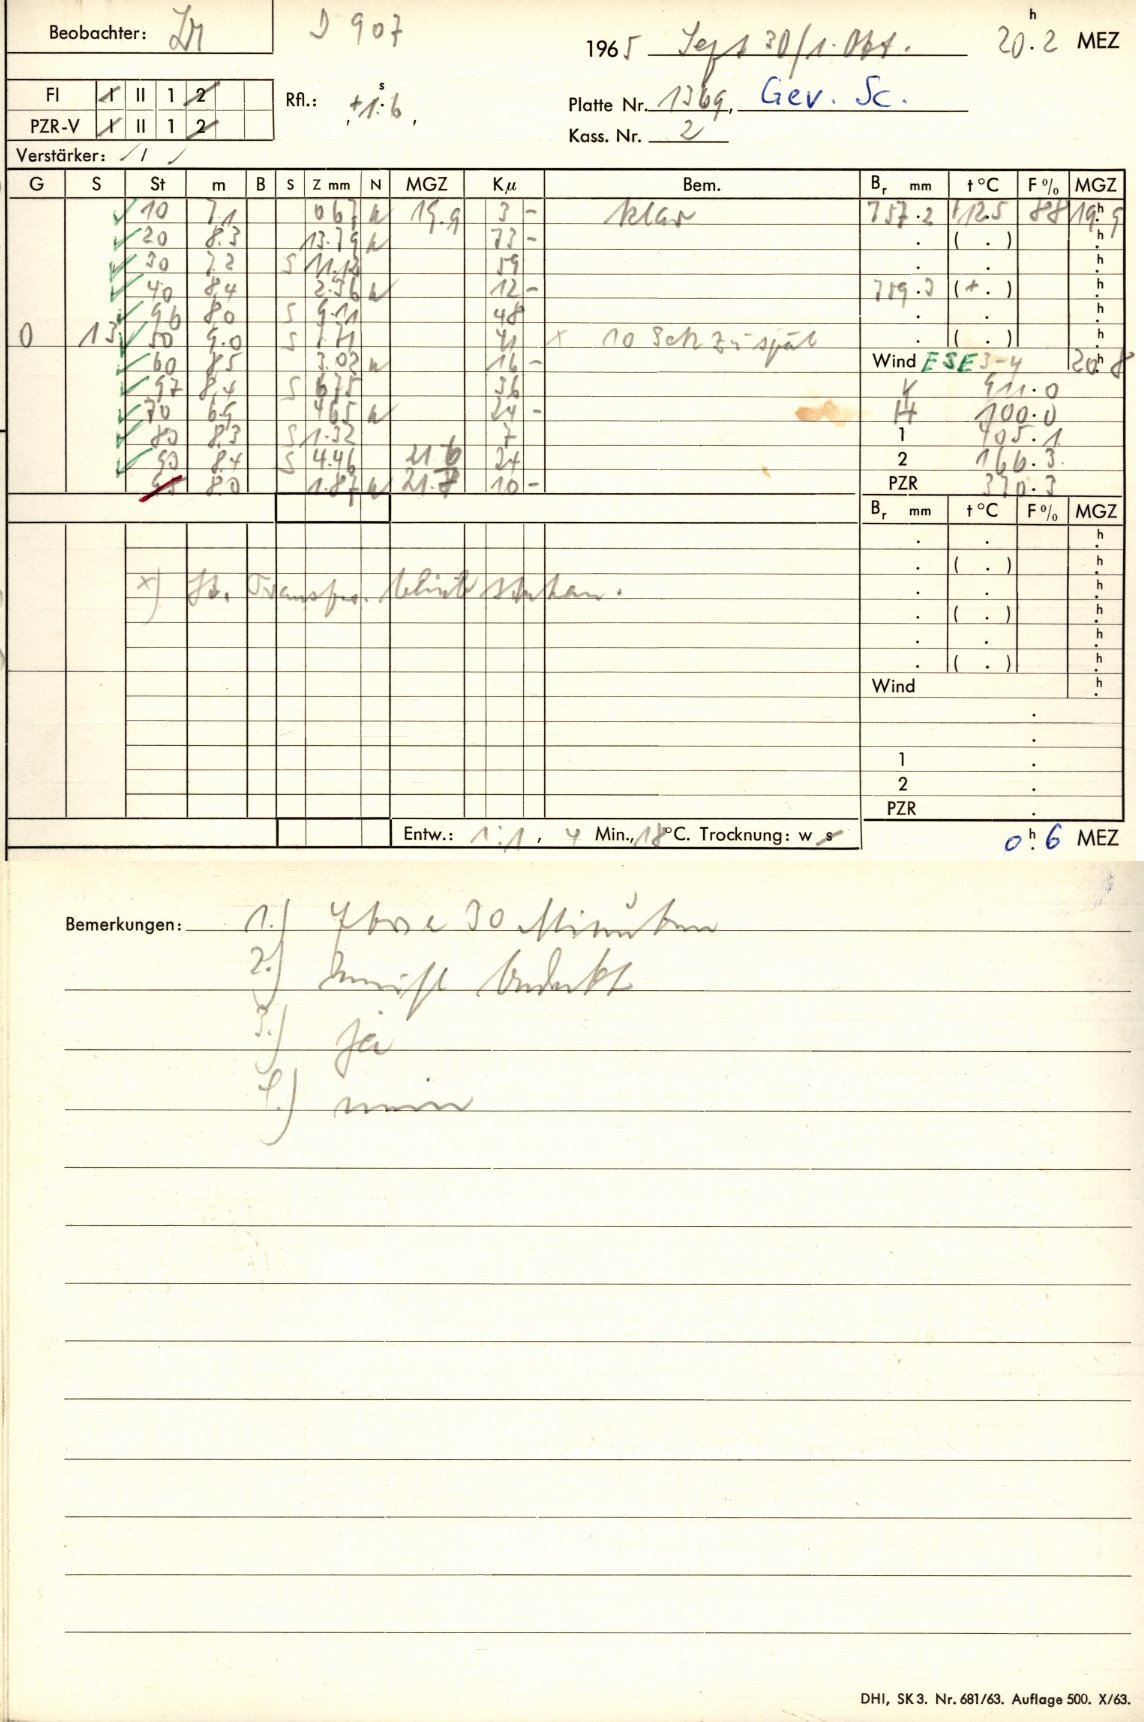 Beobachter: D 907 1965 Sept 30/1. Okt. 20h.2 MEZ
FI I II 1 2 Rfl.: +1s.6, Platte Nr. 1369, Gev. Sc.
PZR-V I II 1 2 Kass. Nr. 2
Verstärker: / 1 /
G S St m B S Z mm N MGZ Kμ Bem. Br mm t °C F % MGZ
10 7.1 0 67 N 19.9 3 - klar 757.2 +12.5 88 19h.9
20 8.3 13.79 N 73 - . ( . ) h.
30 7.2 S 11.12 59 . . h.
40 8.4 2.36 N 12 - 759.3 (+ . ) h.
96 8.0 S 9.11 48 . . h.
0 13 50 9.0 S 7.71 41 x 10 Sek zu spät . ( . ) h.
60 8.5 3.02 N 16 - Wind ESE 3-4 20h.8
97 8.4 S 6.75 36 V 911.0
70 6.9 4.65 N 24 - H 100.0
80 8.3 S 1.32 7 1 405.1
90 8.4 S 4.46 21.6 24 2 166.3
8.0 1.87 N 21.7 10 - PZR 370.3
Br mm t °C F % MGZ
. . h.
. ( . ) h.
x) . . h.
. ( . ) h.
. . h.
. ( . ) h.
Wind h.
.
.
1 .
2 .
PZR .
Entw.: 1:1, 4 Min., 18°C. Trocknung: w s 0h.6 MEZ
Bemerkungen: 1.) 30 Minuten
2.) meist bedeckt
3.) ja
4.) nein
DHI, SK 3. Nr. 681/63. Auflage 500. X/63.